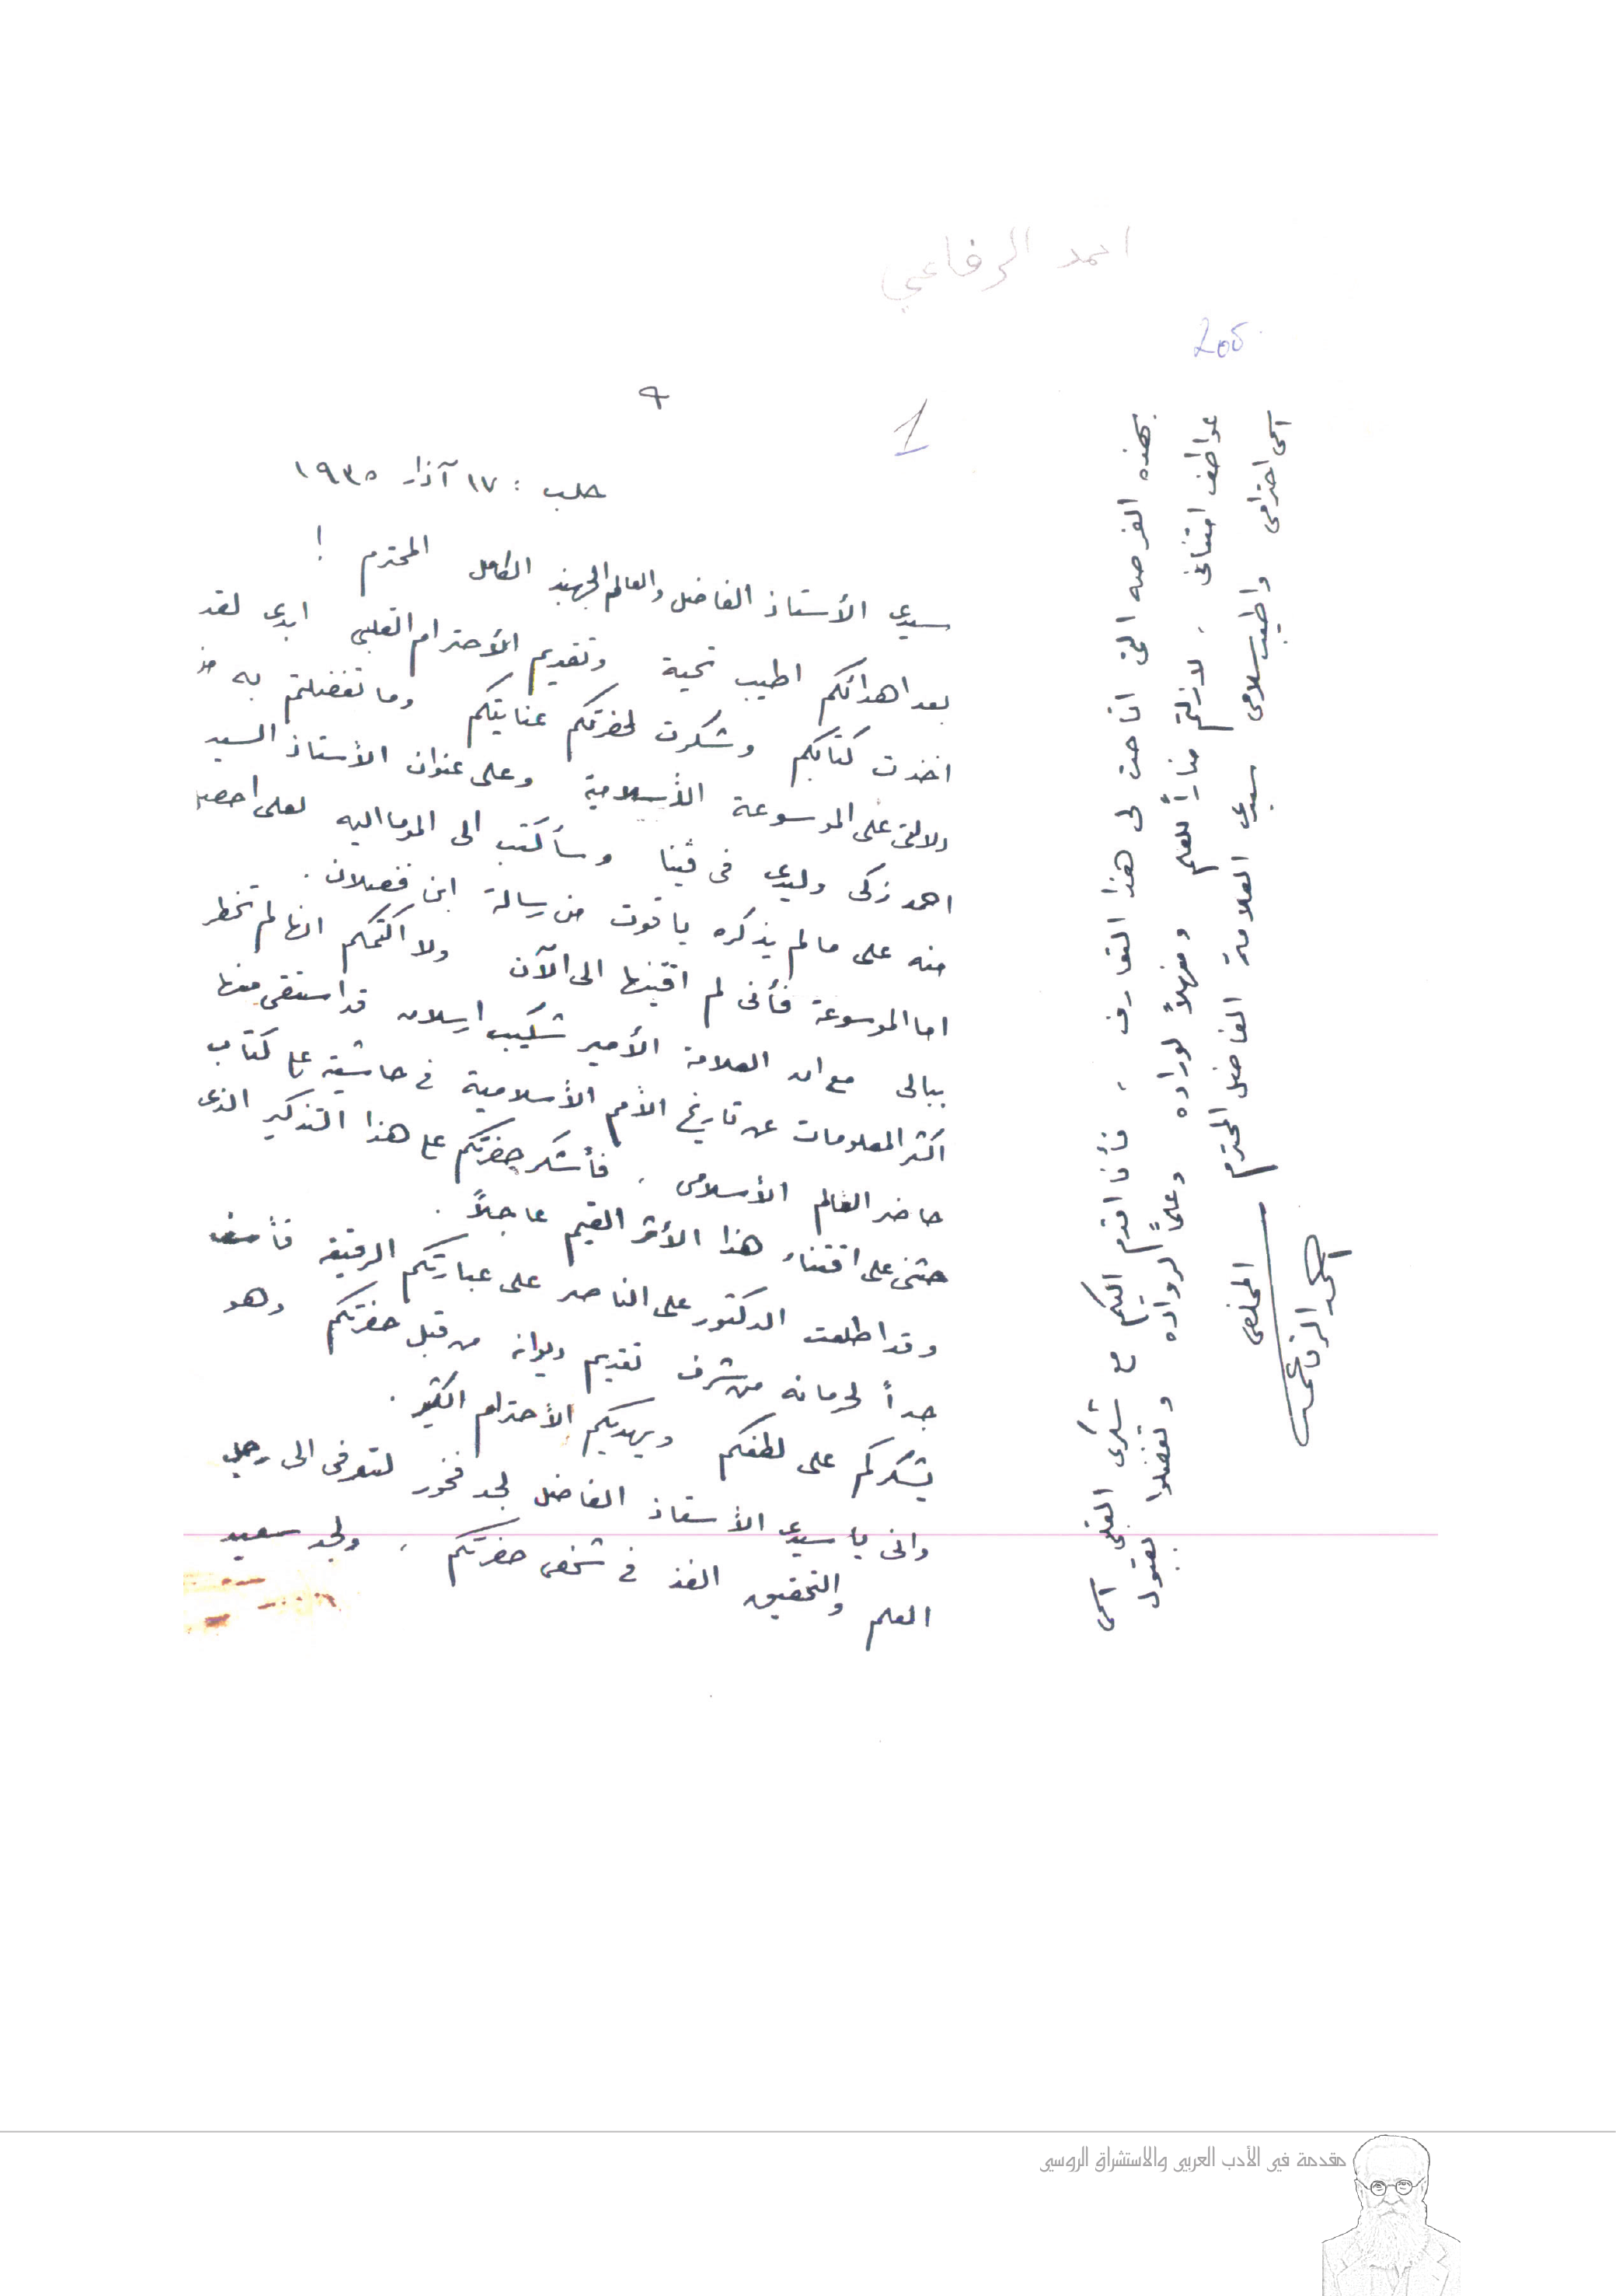 احمد الرفاعي
205
1
٩
حلب : ١٧ آذار ١٩٣٥
سيدي الأستاذ الفاضل والعالم الجهبذ الكامل المحترم !
بعد اهدائكم اطيب تحية وتقديم الأحترام القلبى ابدى لقد
اخذت كتابكم وشكرت لحضرتكم عنايتكم وما تفضلتم به من
دلالتى على الموسوعة الأسلامية وعلى عنوان الأستاذ السيد
احمد زكى وليدى فى ڤينا وسأكتب الى الموما اليه لعلى احصل
منه على ما لم يذكره ياقوت من رسالة ابن فضلان .
اما الموسوعة فأنى لم اقتنها الى الآن ولا اكتمكم انها لم تخطر
ببالى مع ان العلامة الأمير شكيب ارسلان قد استقى منها
اكثر المعلومات عن تاريخ الأمم الأسلامية فى حاشيته على كتاب
حاضر العالم الأسلامى ، فأشكر حضرتكم على هذا التذكير الذى
حثنى على اقتناء هذا الأثر القيم عاجلاً .
وقد اطلعت الدكتور على الناصر على عبارتكم الرقيقة فأسف
جداً لحرمانه من شرف تقديم ديوانه من قبل حضرتكم وهو
يشكركم على لطفكم ويهديكم الأحترام الكثير .
وانى يا سيدى الأستاذ الفاضل لجد فخور لتعرفى الى رجل
العلم والتحقيق الفذ فى شخص حضرتكم ، ولجد سعيد
بهذه الفرصه التى اتاحت لى هذا التعارف ، فأنا اقدم اليكم مع شكرى القلبى اسمى
عواطف امتنانى ، لازلتم مناراً للعلم ومنهلاً لوراده وعلماً لرواده وتفضلوا بقبول
اسمى احترامى واطيب سلامى سيدى العلامة الفاضل المحترم
المخلص
احمد الرفاعى
مقدمة في الأدب العربي والاستشراق الروسي